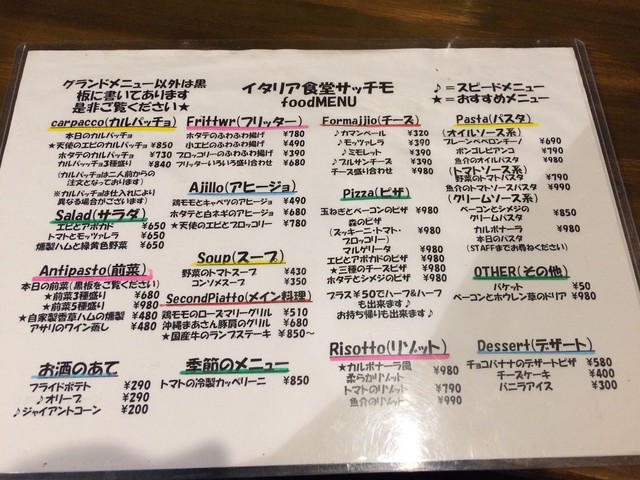 グランドメニュー以外は黒
板に書いてあります
是非ご覧ください★
イタリア食堂サッチモ
foodMENU
♪=スピードメニュー
★=おすすめメニュー
carpacco(カルパッチョ)
本日のカルパッチョ
★天使のエビのカルパッチョ ¥850
ホタテのカルパッチョ ¥730
カルパッチョ3種盛り ¥840
(カルパッチョは二人前からの
注文となっております)
※カルパッチョは仕入により
異なる場合がございます)
Salad(サラダ)
エビとアボカド ¥650
トマトとモッツァレラ ¥650
燻製ハムと緑黄色野菜 ¥650
Antipasto(前菜)
本日の前菜(黒板をご覧ください)
★前菜3種盛り ¥680
★前菜5種盛り ¥980
★自家製香草ハムの燻製 ¥480
アサリのワイン蒸し ¥480
お酒のあて
フライドポテト ¥290
♪オリーブ ¥290
♪ジャイアントコーン ¥200
Frittwr(フリッター)
ホタテのふわふわ揚げ ¥780
小エビのふわふわ揚げ ¥490
ブロッコリーのふわふわ揚げ ¥390
フリッターいろいろ盛り合わせ ¥680
Ajillo(アヒージョ)
鶏モモとキャベツのアヒージョ ¥490
ホタテと白ネギのアヒージョ ¥680
★天使のエビとブロッコリー ¥780
Soup(スープ)
野菜のトマトスープ ¥430
コンソメスープ ¥350
SecondPiatto(メイン料理)
鶏モモのローズマリーグリル ¥510
沖縄まあさん豚肩のグリル ¥680
★国産牛のランプステーキ ¥850~
季節のメニュー
トマトの冷製カッペリーニ ¥850
Formajjio(チーズ)
♪カマンベール ¥320
♪モッツァレラ ¥390
♪ミモレット ¥390
♪ブルサンチーズ ¥390
チーズ盛り合わせ ¥980
Pizza(ピザ)
玉ねぎとベーコンのピザ ¥980
森のピザ
(ズッキーニ・トマト・
ブロッコリー) ¥980
マルゲリータ ¥980
エビとアボカドのピザ ¥980
★三種のチーズピザ ¥980
ホタテとシメジのピザ ¥980
プラス¥50でハーフ&ハーフ
も出来ます♪
お持ち帰りも出来ます♪
Risotto(リゾット)
★カルボナーラ風
柔らかリゾット ¥980
トマトのリゾット ¥790
魚介のリゾット ¥990
Pasta(パスタ)
(オイルソース系)
プレーンペペロンチーノ ¥690
ボンゴレビアンコ ¥790
魚介のオイルパスタ ¥980
(トマトソース系)
野菜のトマトパスタ ¥790
魚介のトマトソースパスタ ¥990
(クリームソース系)
ベーコンとシメジの
クリームパスタ ¥850
カルボナーラ ¥980
本日のパスタ
(STAFFまでお尋ねください)
OTHER(その他)
バケット ¥50
ベーコンとホウレン草のドリア ¥980
Dessert(デザート)
チョコバナナのデザートピザ ¥580
チーズケーキ ¥400
バニラアイス ¥300